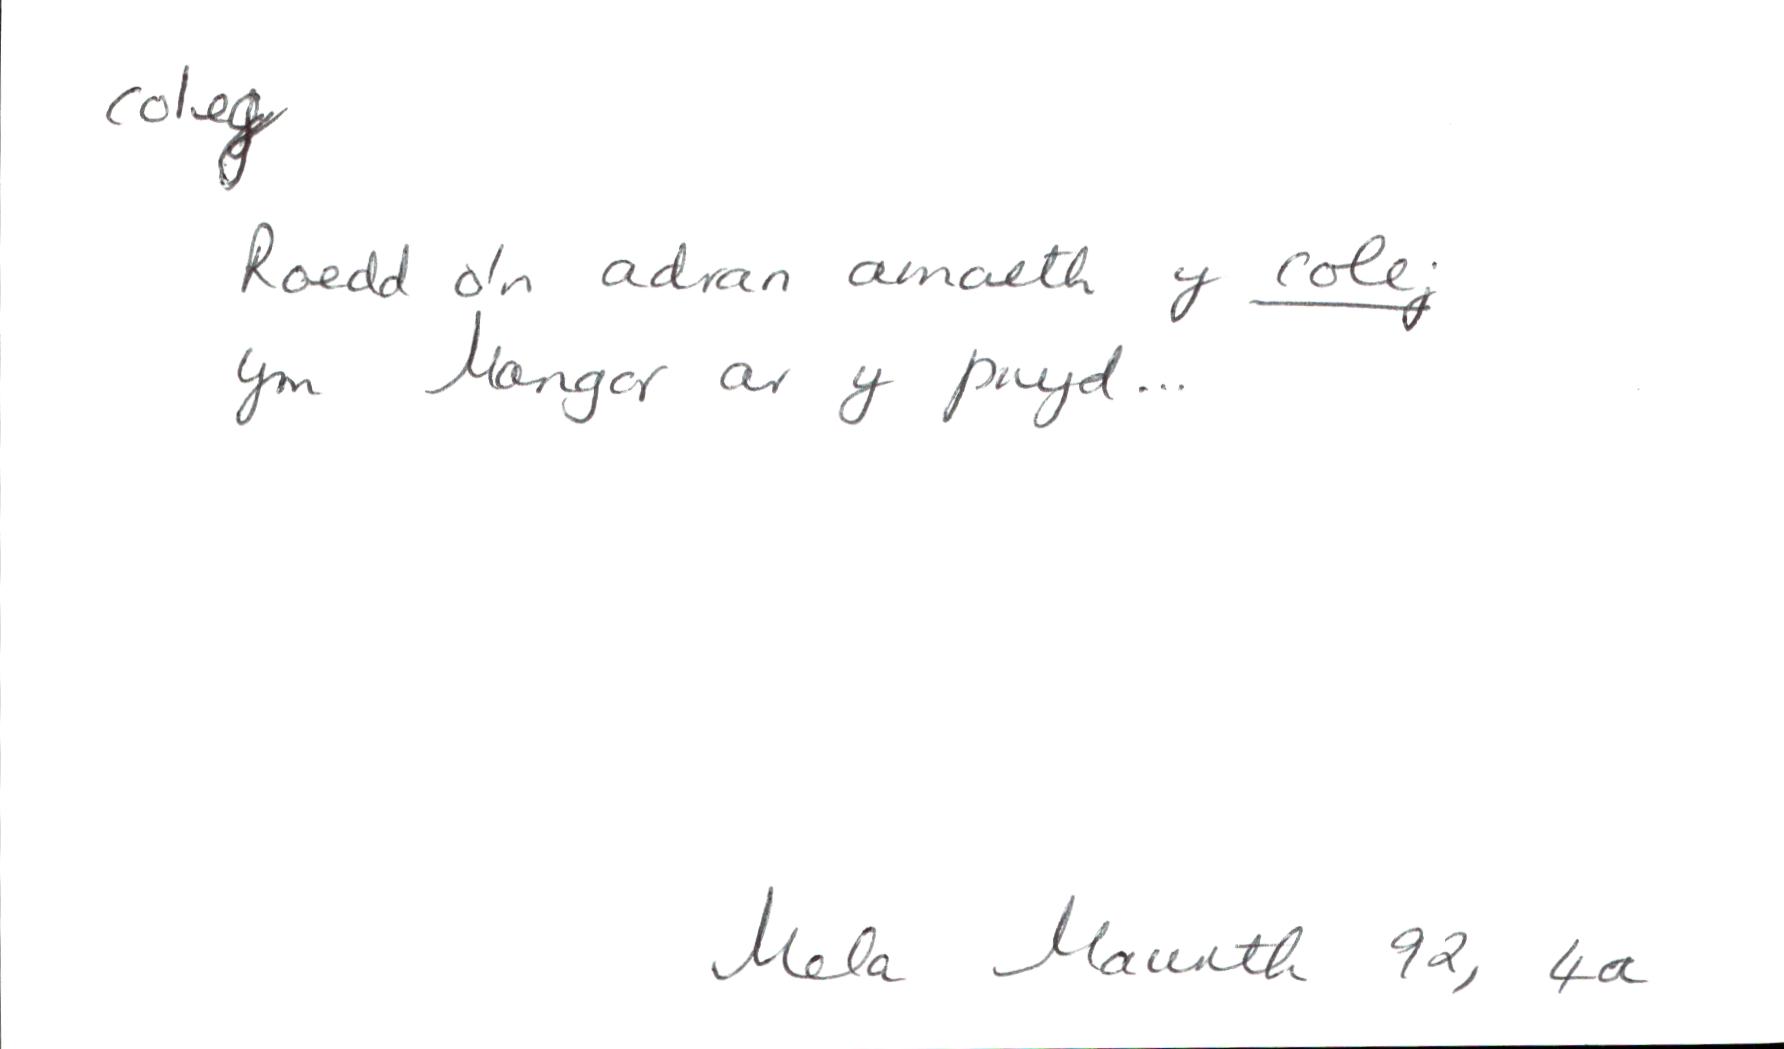 coleg
Roedd o'n adran amaeth y colej
ym Mangor ar y pryd...
Mela Mawrth 92, 4a